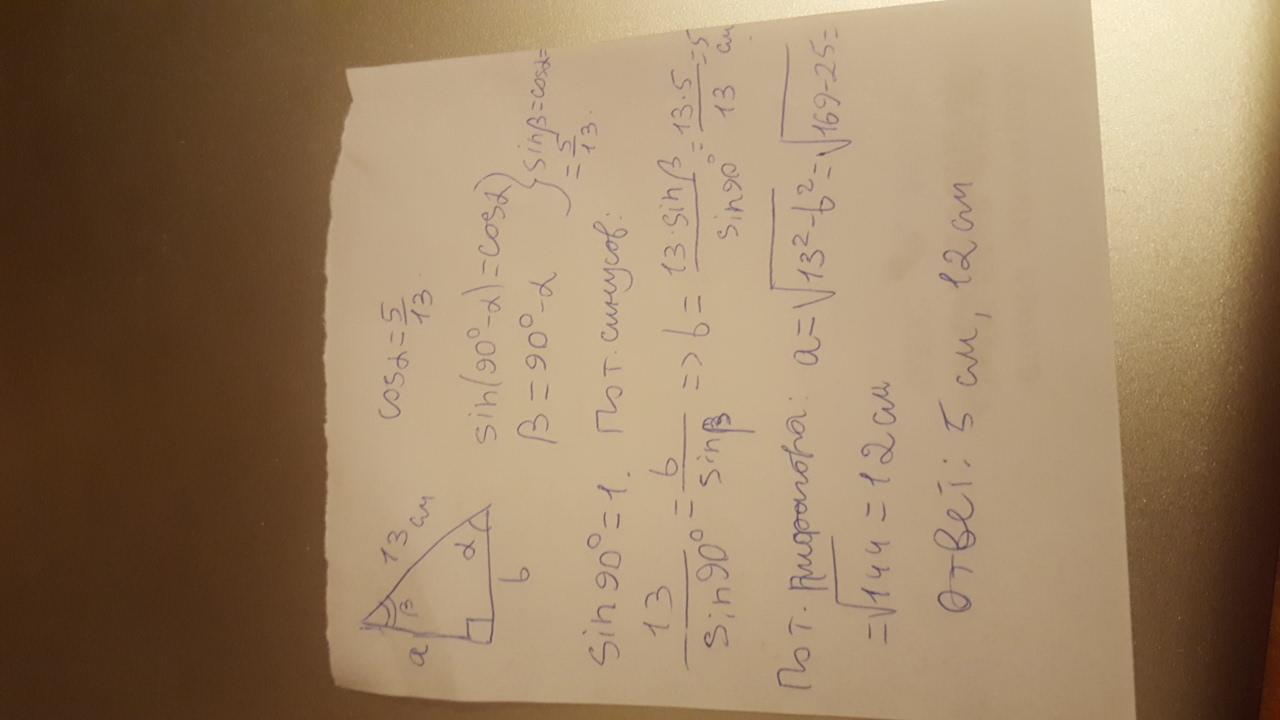 cosα = 5/13
a β 13 см α b
sin(90°-α) = cosα } sinβ = cosα =
β = 90° - α = 5/13.
Sin90° = 1. По т. синусов:
13/Sin90° = b/sinβ => b = 13·sinβ/sin90° = 13·5/13 = 5 см
По т. Пифагора: a = √13²-b² = √169-25 =
= √144 = 12 см
Ответ: 5 см, 12 см